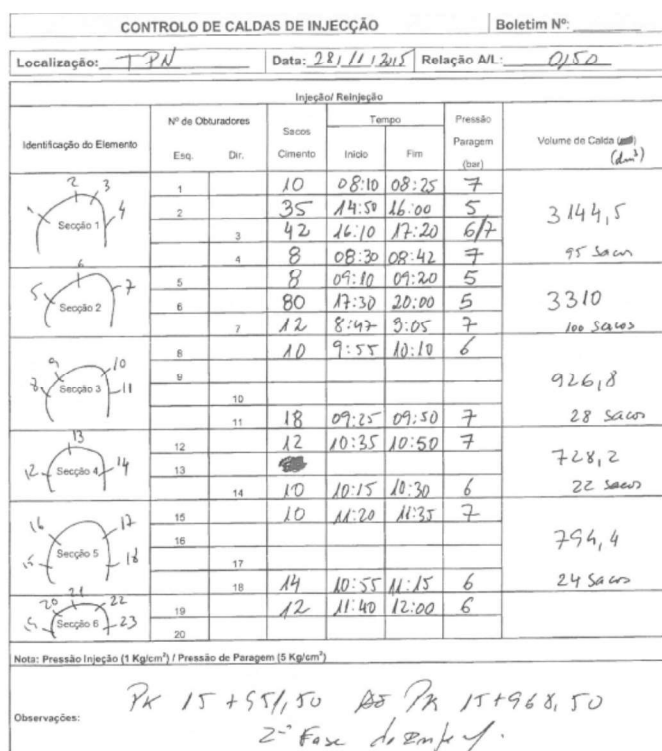 CONTROLO DE CALDAS DE INJECÇÃO Boletim Nº:
Localização: TPN Data: 28/11/2015 Relação A/L: 0,50
Injeção/ Reinjeção
Identificação do Elemento Nº de Obturadores Sacos Cimento Tempo Pressão Paragem (bar) Volume de Calda (dm³)
Esq. Dir. Inicio Fim
1 2 3 4 Secção 1
1 10 08:10 08:25 7
2 35 14:50 16:00 5
3 42 16:10 17:20 6/7
4 8 08:30 08:42 7
3144,5
95 Sacos
5 6 7 Secção 2
5 8 09:10 09:20 5
6 80 17:30 20:00 5
7 12 8:47 9:05 7
3310
100 sacos
8 9 10 11 Secção 3
8 10 9:55 10:10 6
9
10
11 18 09:25 09:50 7
926,8
28 sacos
12 13 14 Secção 4
12 12 10:35 10:50 7
13
14 10 10:15 10:30 6
728,2
22 sacos
15 16 17 18 Secção 5
15 10 11:20 11:35 7
16
17
18 14 10:55 11:15 6
794,4
24 Sacos
20 21 22 23 Secção 6
19 12 11:40 12:00 6
20
Nota: Pressão Injeção (1 Kg/cm²) / Pressão de Paragem (5 Kg/cm²)
PK 15+951,50 PK 15+968,50
Observações: 2ª Fase